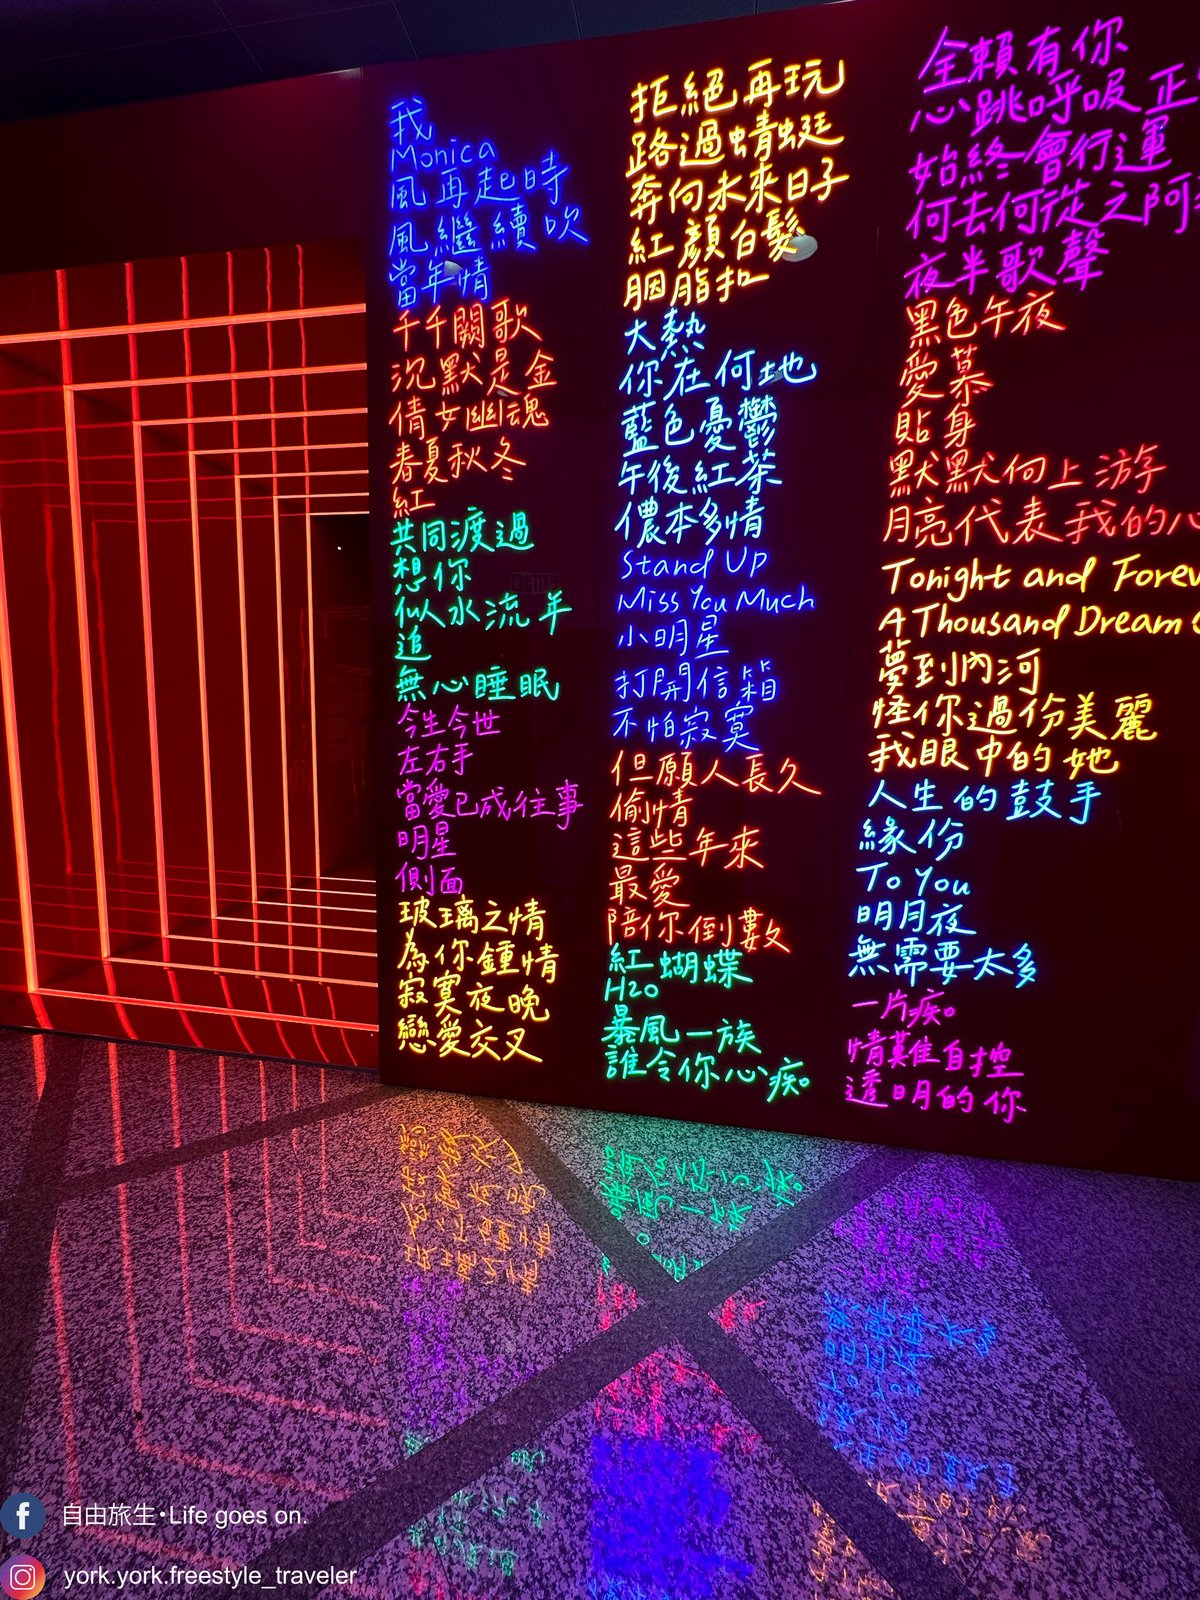 我
Monica
風再起時
風繼續吹
當年情
千千闕歌
沉默是金
倩女幽魂
春夏秋冬
紅
共同渡過
想你
似水流年
追
無心睡眠
今生今世
左右手
當愛已成往事
明星
側面
玻璃之情
為你鍾情
寂寞夜晚
戀愛交叉
拒絕再玩
路過蜻蜓
奔向未來日子
紅顏白髮
胭脂扣
大熱
你在何地
藍色憂鬱
午後紅茶
儂本多情
Stand Up
Miss You Much
小明星
打開信箱
不怕寂寞
但願人長久
偷情
這些年來
最愛
陪你倒數
紅蝴蝶
H2O
暴風一族
誰令你心痴
全賴有你
心跳呼吸正
始終會行運
何去何從之阿
夜半歌聲
黑色午夜
愛慕
貼身
默默向上游
月亮代表我的心
Tonight and Forev
A Thousand Dream
夢到內河
怪你過份美麗
我眼中的她
人生的鼓手
緣份
To You
明月夜
無需要太多
一片痴
情難自控
透明的你
自由旅生•Life goes on.
york.york.freestyle_traveler